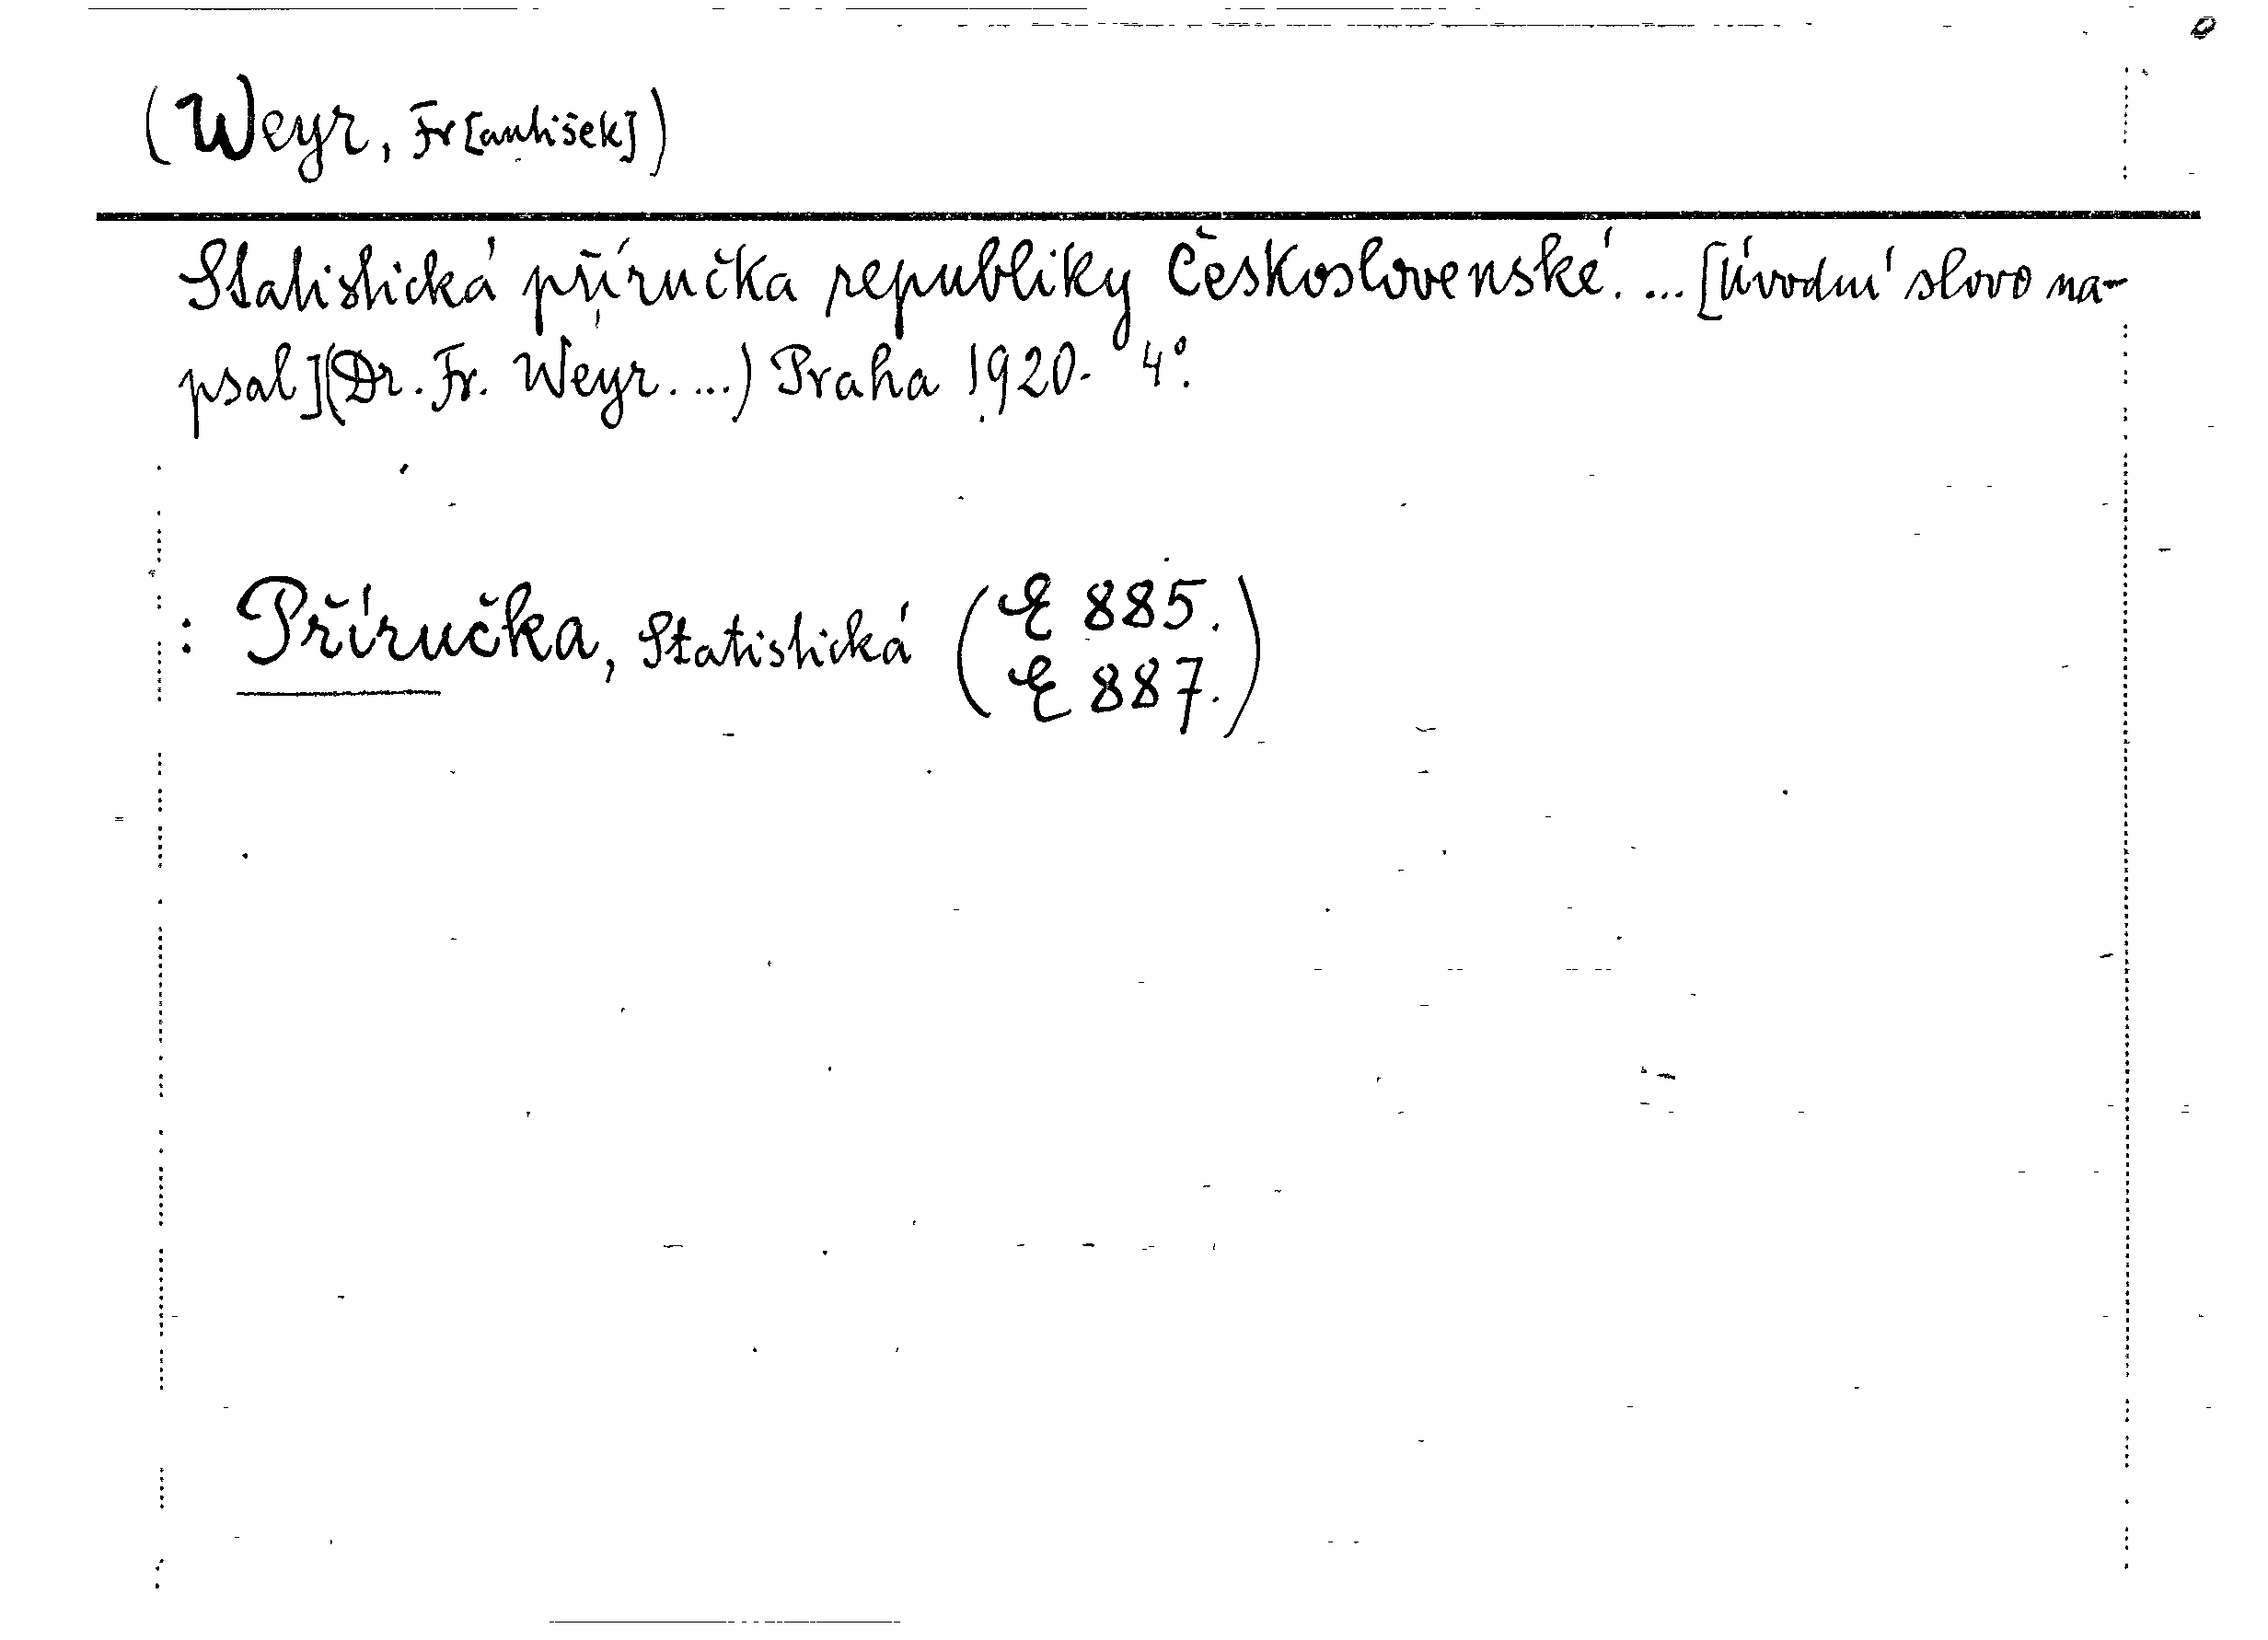 (Weyr, Fr[antišek])
Statistická příručka republiky Československé. ... [Úvodní slovo na-
psal](Dr. Fr. Weyr. ...) Praha 1920. 4°.
: Příručka, Statistická (E 885.
E 887.)